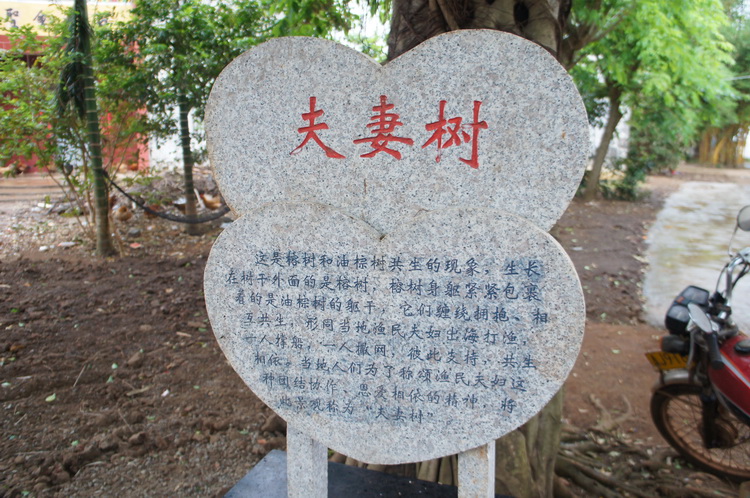 夫妻树
这是榕树和油棕树共生的现象，生长
在树干外面的是榕树，榕树身躯紧紧包裹
着的是油棕树的躯干，它们缠绕拥抱、相
互共生，形同当地渔民夫妇出海打渔，
一人撑船，一人撒网，彼此支持，共生
相依。当地人们为了称颂渔民夫妇这
种团结协作、恩爱相依的精神，将
此景观称为“夫妻树”